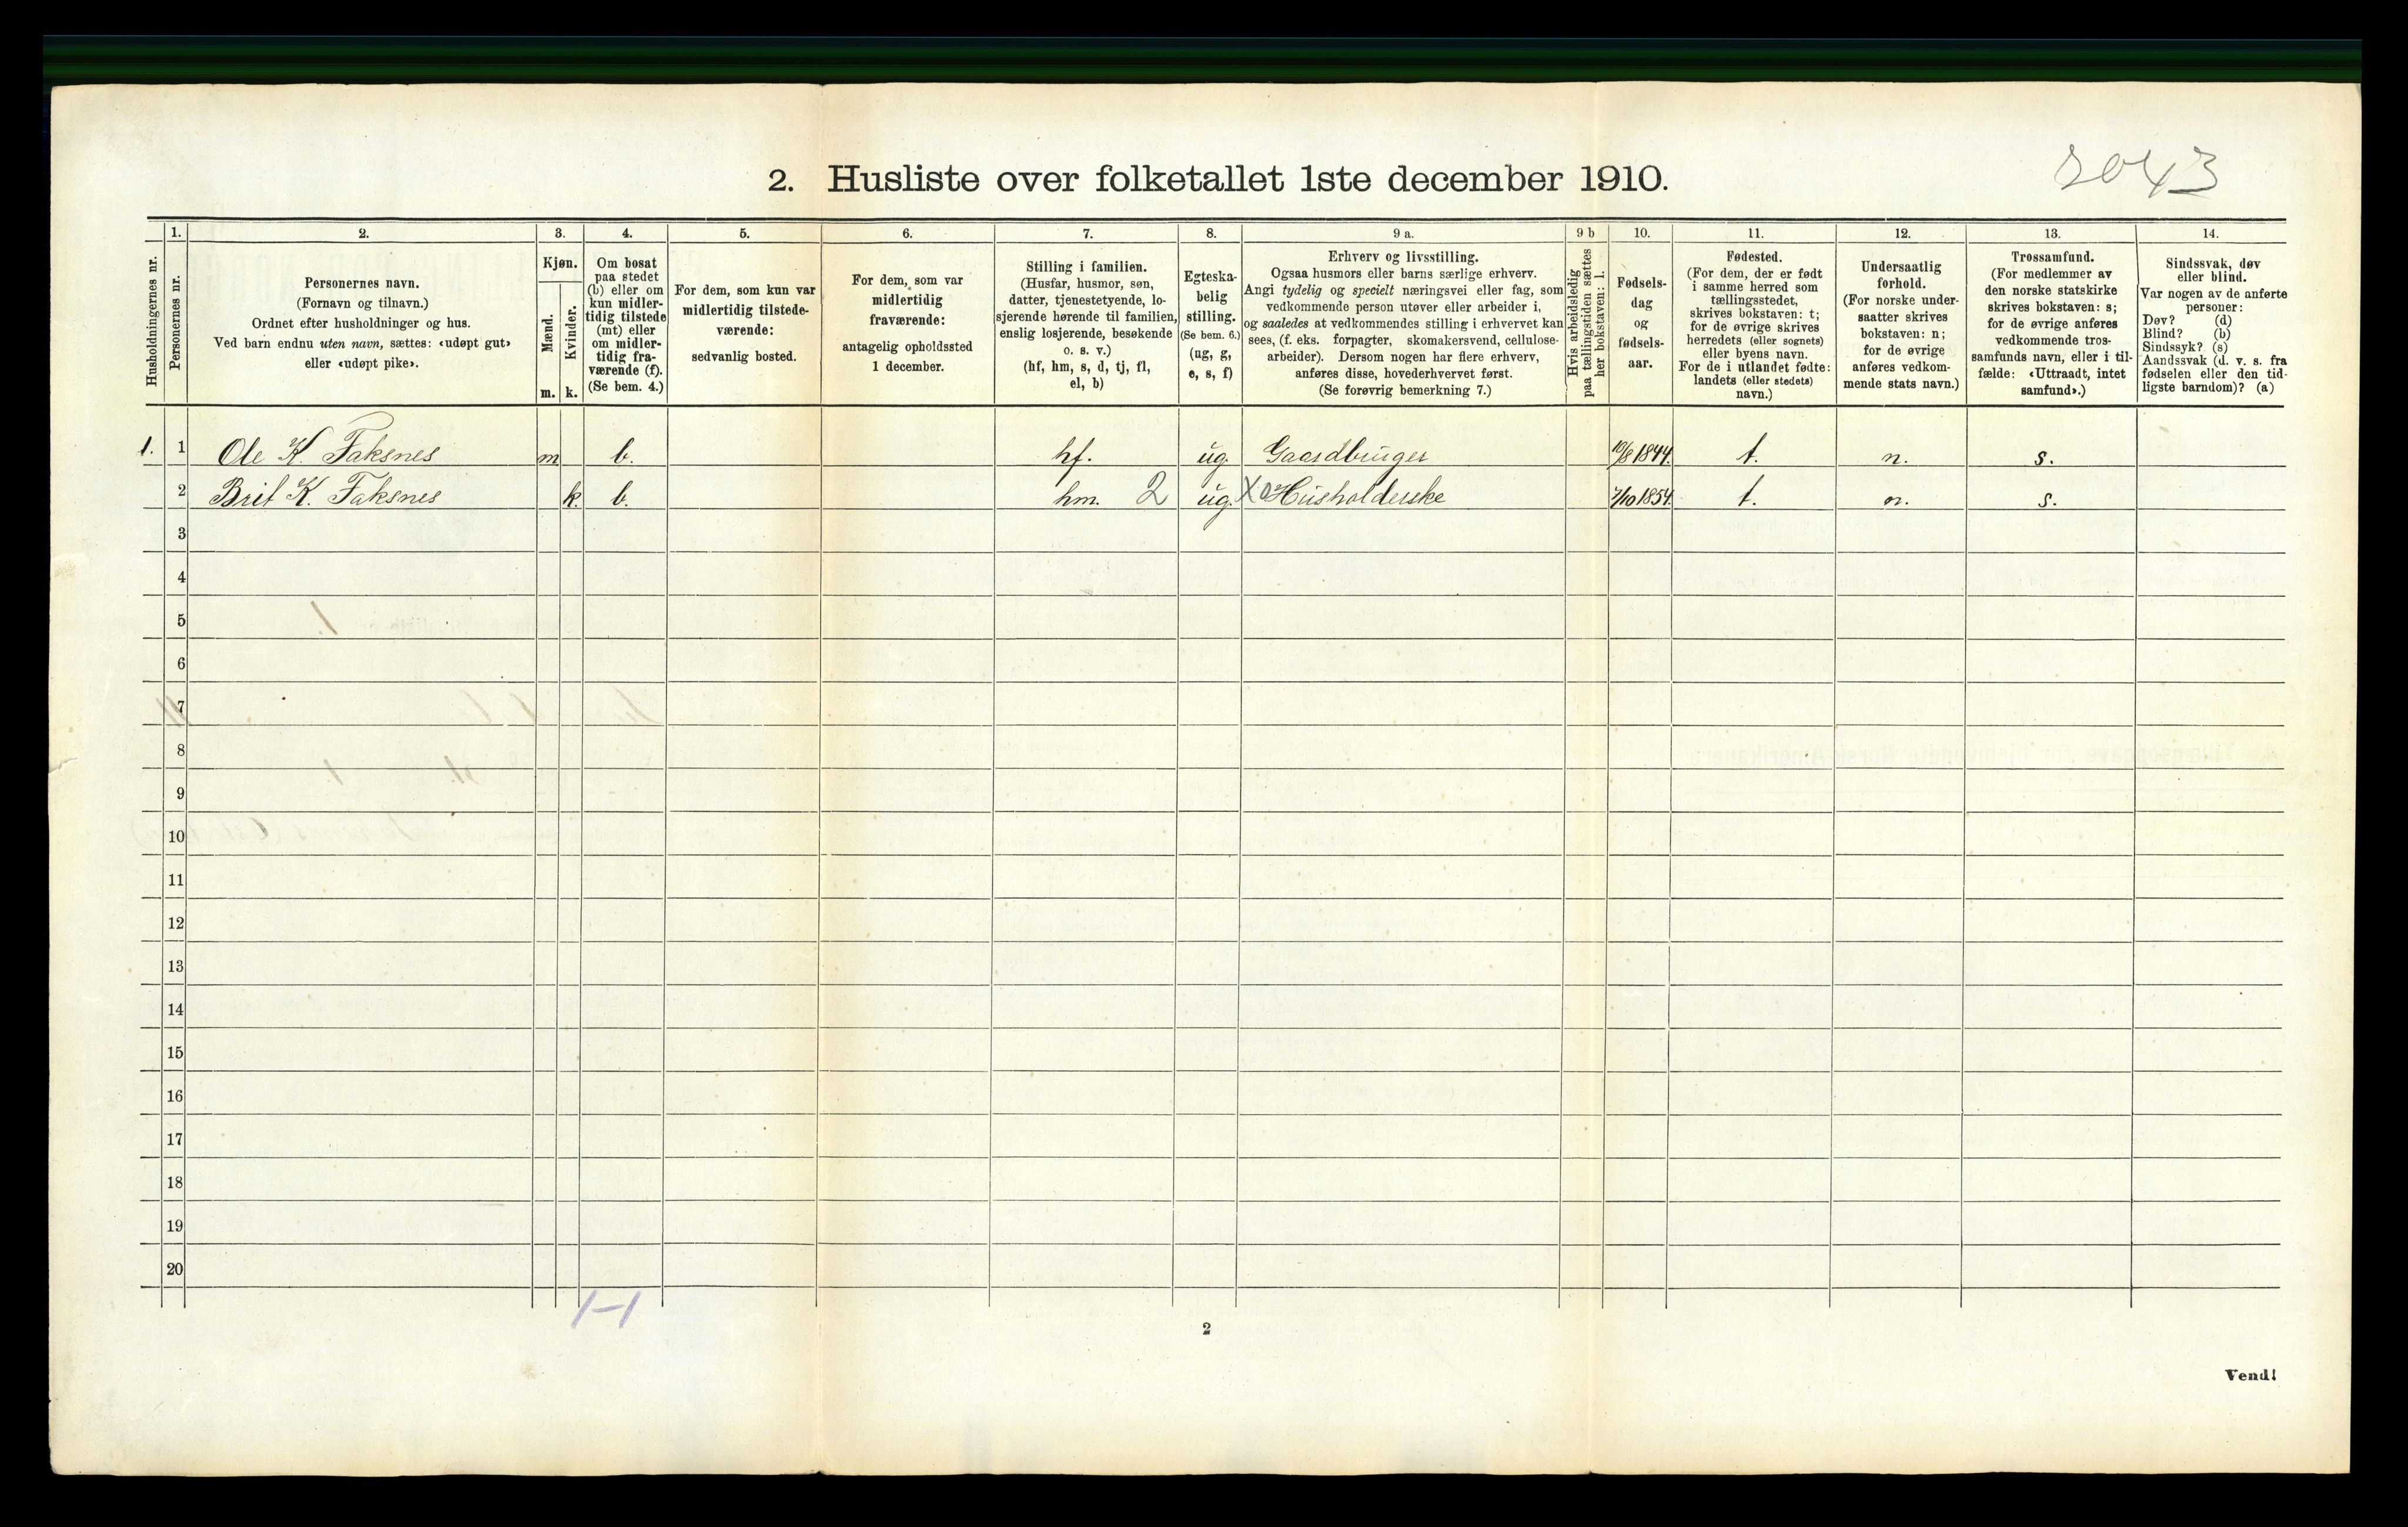 2043
2. Husliste over folketallet 1ste december 1910.
Husholdningernes nr.
1.
Personernes nr.
2.
Personernes navn.
(Fornavn og tilnavn.)
Ordnet efter husholdninger og hus.
Ved barn endnu uten navn, sættes: «udøpt gut»
eller «udøpt pike».
3.
Kjøn.
Mænd.
Kvinder.
m. k.
4.
Om bosat
paa stedet
(b) eller om
kun midler-
tidig tilstede
(mt) eller
om midler-
tidig fra-
værende (f).
(Se bem. 4.)
5.
For dem, som kun var
midlertidig tilstede-
værende:
sedvanlig bosted.
6.
For dem, som var
midlertidig
fraværende:
antagelig opholdssted
1 december.
7.
Stilling i familien.
(Husfar, husmor, søn,
datter, tjenestetyende, lo-
sjerende hørende til familien,
enslig losjerende, besøkende
o. s. v.)
(hf, hm, s, d, tj, fl,
el, b)
8.
Egteska-
belig
stilling.
(Se bem. 6.)
(ug, g,
e, s, f)
9 a.
Erhverv og livsstilling.
Ogsaa husmors eller barns særlige erhverv.
Angi tydelig og specielt næringsvei eller fag, som
vedkommende person utøver eller arbeider i,
og saaledes at vedkommendes stilling i erhvervet kan
sees, (f. eks. forpagter, skomakersvend, cellulose-
arbeider). Dersom nogen har flere erhverv,
anføres disse, hovederhvervet først.
(Se forøvrig bemerkning 7.)
9 b
Hvis arbeidsledig
paa tællingstiden sættes
her bokstaven: l.
10.
Fødsels-
dag
og
fødsels-
aar.
11.
Fødested.
(For dem, der er født
i samme herred som
tællingsstedet,
skrives bokstaven: t;
for de øvrige skrives
herredets (eller sognets)
eller byens navn.
For de i utlandet fødte:
landets (eller stedets)
navn.)
12.
Undersaatlig
forhold.
(For norske under-
saatter skrives
bokstaven: n;
for de øvrige
anføres vedkom-
mende stats navn.)
13.
Trossamfund.
(For medlemmer av
den norske statskirke
skrives bokstaven: s;
for de øvrige anføres
vedkommende tros-
samfunds navn, eller i til-
fælde: «Uttraadt, intet
samfund».)
14.
Sindssvak, døv
eller blind.
Var nogen av de anførte
personer:
Døv? (d)
Blind? (b)
Sindssyk? (s)
Aandssvak (d. v. s. fra
fødselen eller den tid-
ligste barndom)? (a)
1. 1 Ole K. Faksnes m b. hf. ug Gaardbruger 10/8 1844. t. n. s.
2 Brit K. Faksnes k. b. hm. 2 ug. X0 Husholderske 7/10 1854. t. n. s.
3
4
5
6
7
8
9
10
11
12
13
14
15
16
17
18
19
20
1-1
2
Vend!